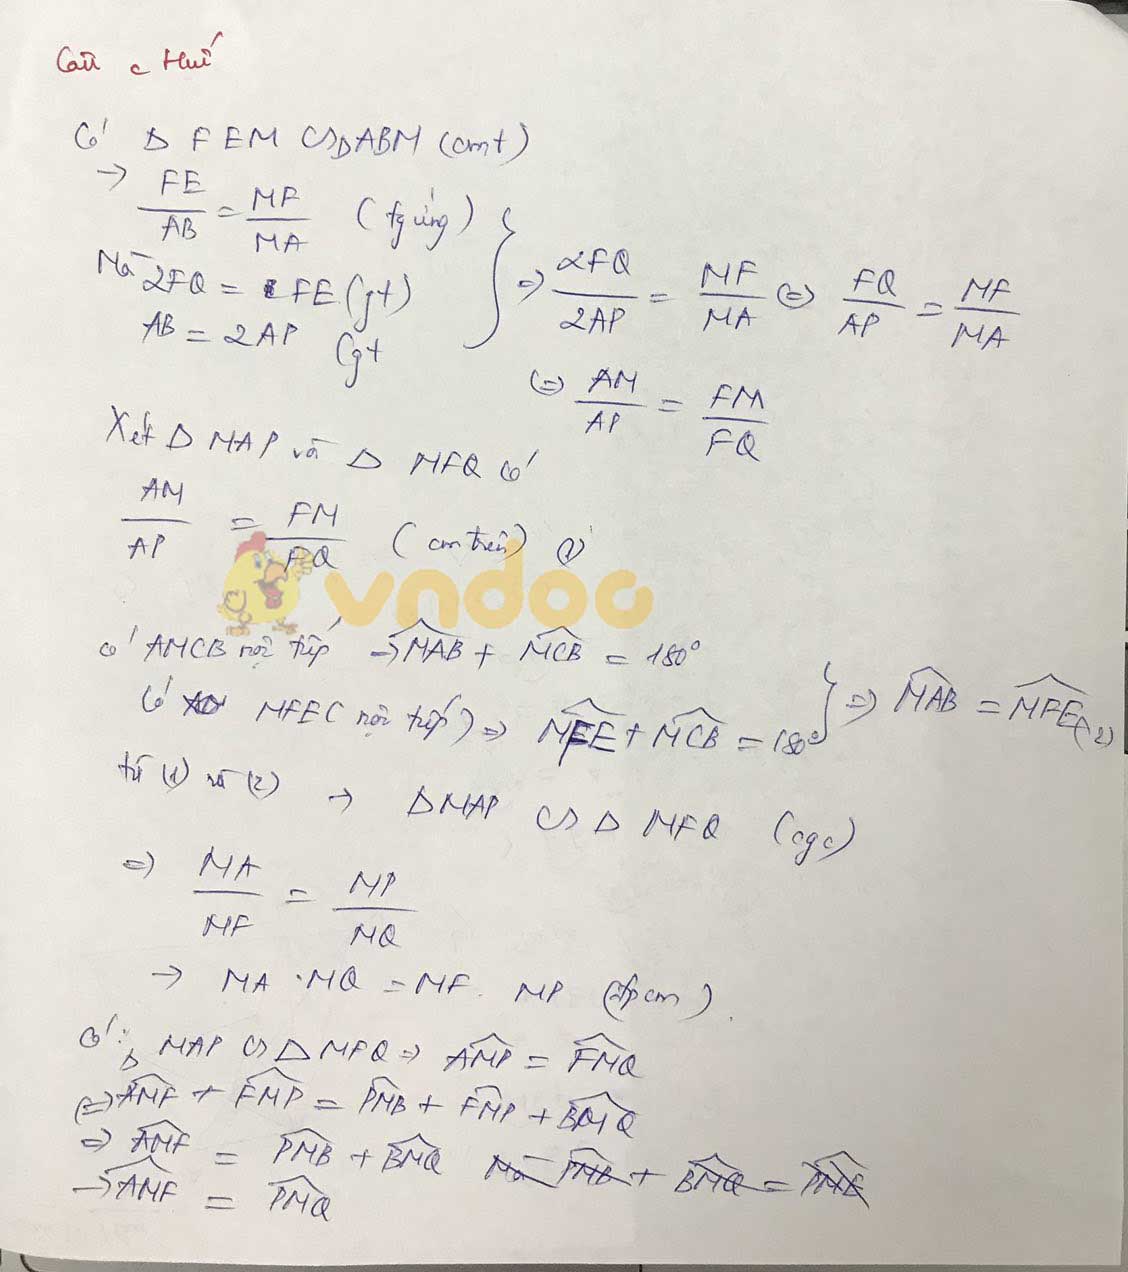 Câu c Huế
Có Δ FEM ∽ Δ ABM (cmt)
→ FE/AB = MF/MA (tg ứng)
Mà 2FQ = FE (gt)
AB = 2AP (gt
} ⇒ 2FQ/2AP = MF/MA ⇔ FQ/AP = MF/MA
⇔ AM/AP = FM/FQ
Xét Δ MAP và Δ MFQ có
AM/AP = FM/FQ (cm trên) (1)
vndoc
có AMCB nội tiếp → MAB^ + MCB^ = 180°
Có MFEC nội tiếp) ⇒ MFE^ + MCB^ = 180°
} ⇒ MAB^ = MFE^ (2)
từ (1) và (2) → ΔMAP ∽ Δ MFQ (cgc)
⇒ MA/MF = MP/MQ
→ MA . MQ = MF . MP (đpcm).
có: Δ MAP ∽ Δ MFQ ⇒ AMP^ = FMQ^
⇔ AMF^ + FMP^ = PMB^ + FMP^ + BMQ^
⇒ AMF^ = PMB^ + BMQ^ Mà PMB^ + BMQ^ =
→ AMF^ = PMQ^